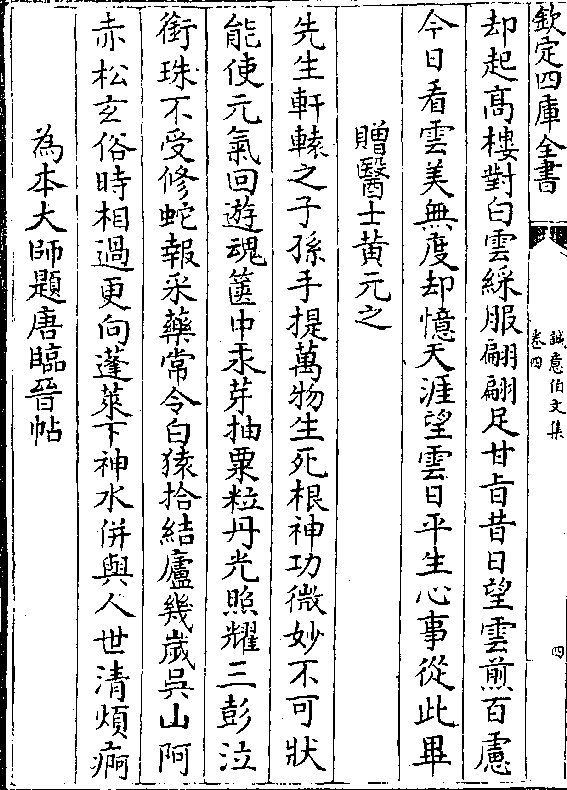 欽定四庫全書
誠意伯文集
卷四
四
却起髙樓對白雲綵服翩翩足甘㫖昔日望雲煎百慮
今日看雲美無度却憶天涯望雲日平生心事從此畢
贈醫士黄元之
先生軒轅之子孫手提萬物生死根神功微妙不可狀
能使元氣回遊魂篋中汞芽抽粟粒丹光照耀三彭泣
銜珠不受修蛇報采藥常令白猿拾結廬幾嵗吳山阿
赤松玄俗時相過更向蓬萊下神水併與人世清煩痾
為本大師題唐臨晉帖